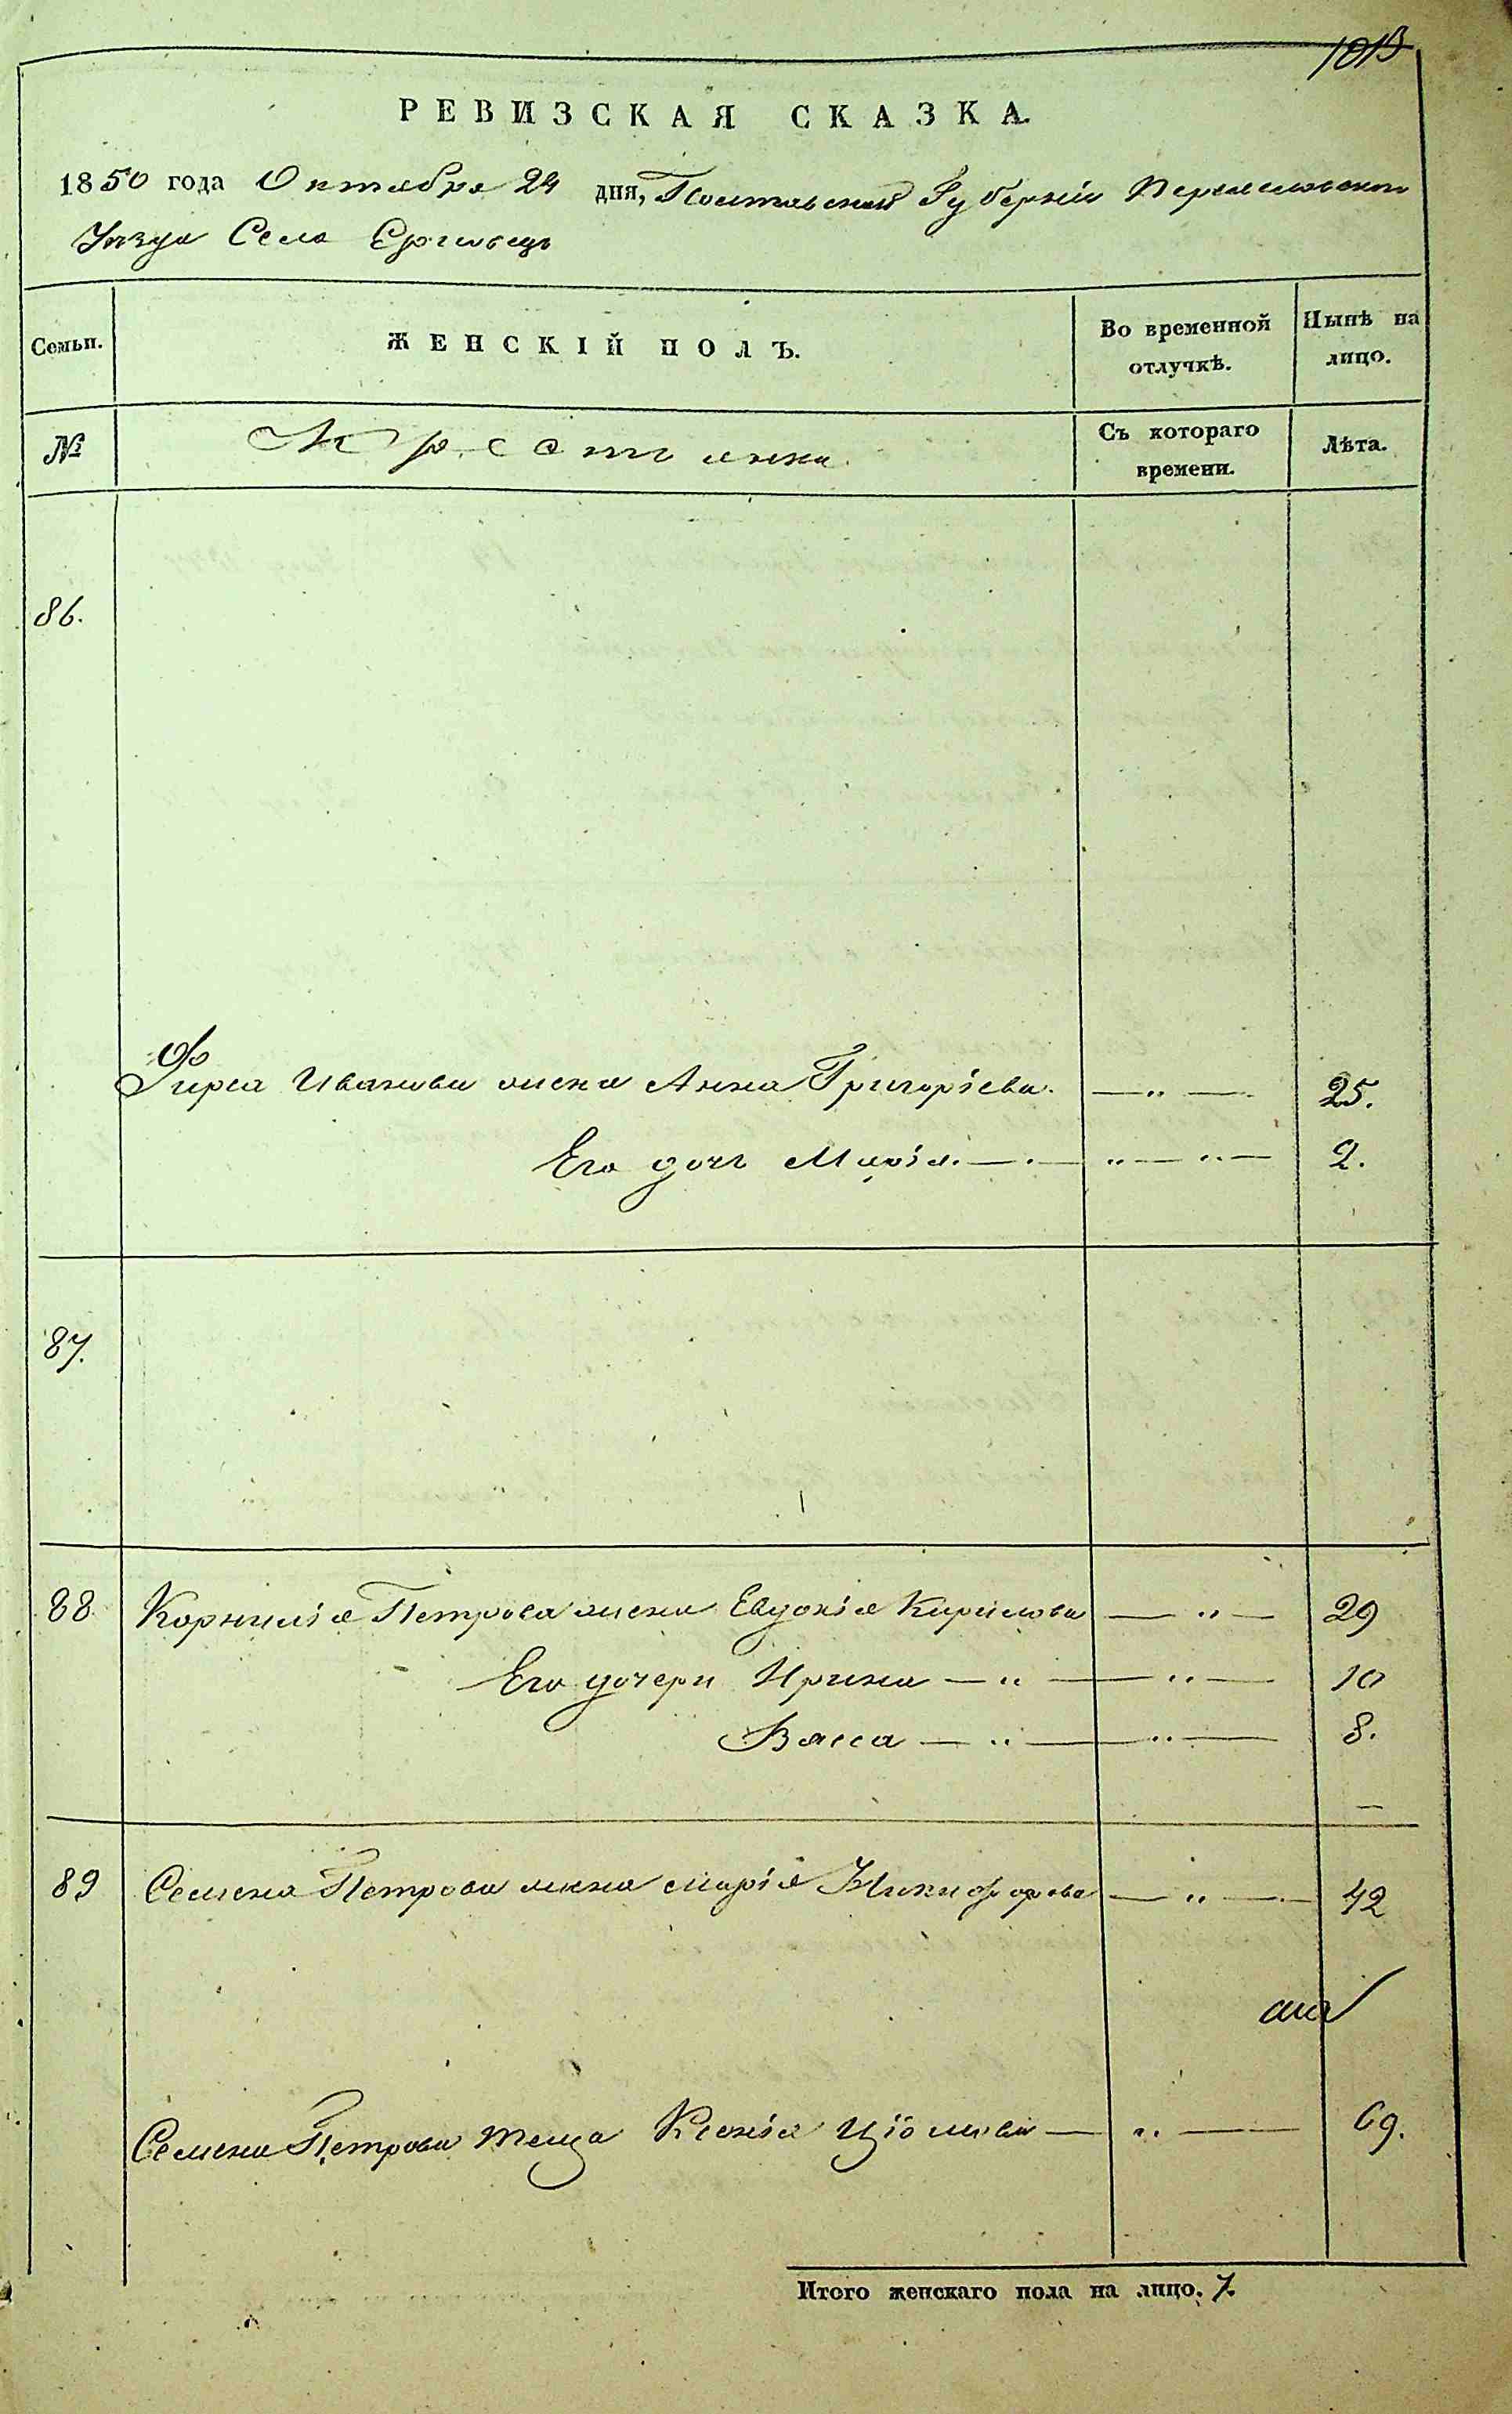 1013
РЕВИЗСКАЯ СКАЗКА.
1850 года Октября 24 дня, Полтавской Губерніи
Уезда Села
Семьи. ЖЕНСКІЙ ПОЛЪ. Во временной отлучкѣ. Нынѣ на лицо.
№ Крестьяни Съ котораго времени. Лѣта.
86.
Фирса Иванова жена Анна Григоріева. — " — 25.
Его дочь Марія. — " — " — 2.
87.
88 Корнилія Петрова жена Евдокія Кирилова — " — 29
Его дочери Ирина — " — " — 10
Васса — " — " — 8.
89 Семена Петрова жена Марія Никифорова — " — 42
Семена Петрова теща Ксенія — " — 69.
Итого женскаго пола на лицо. 7.